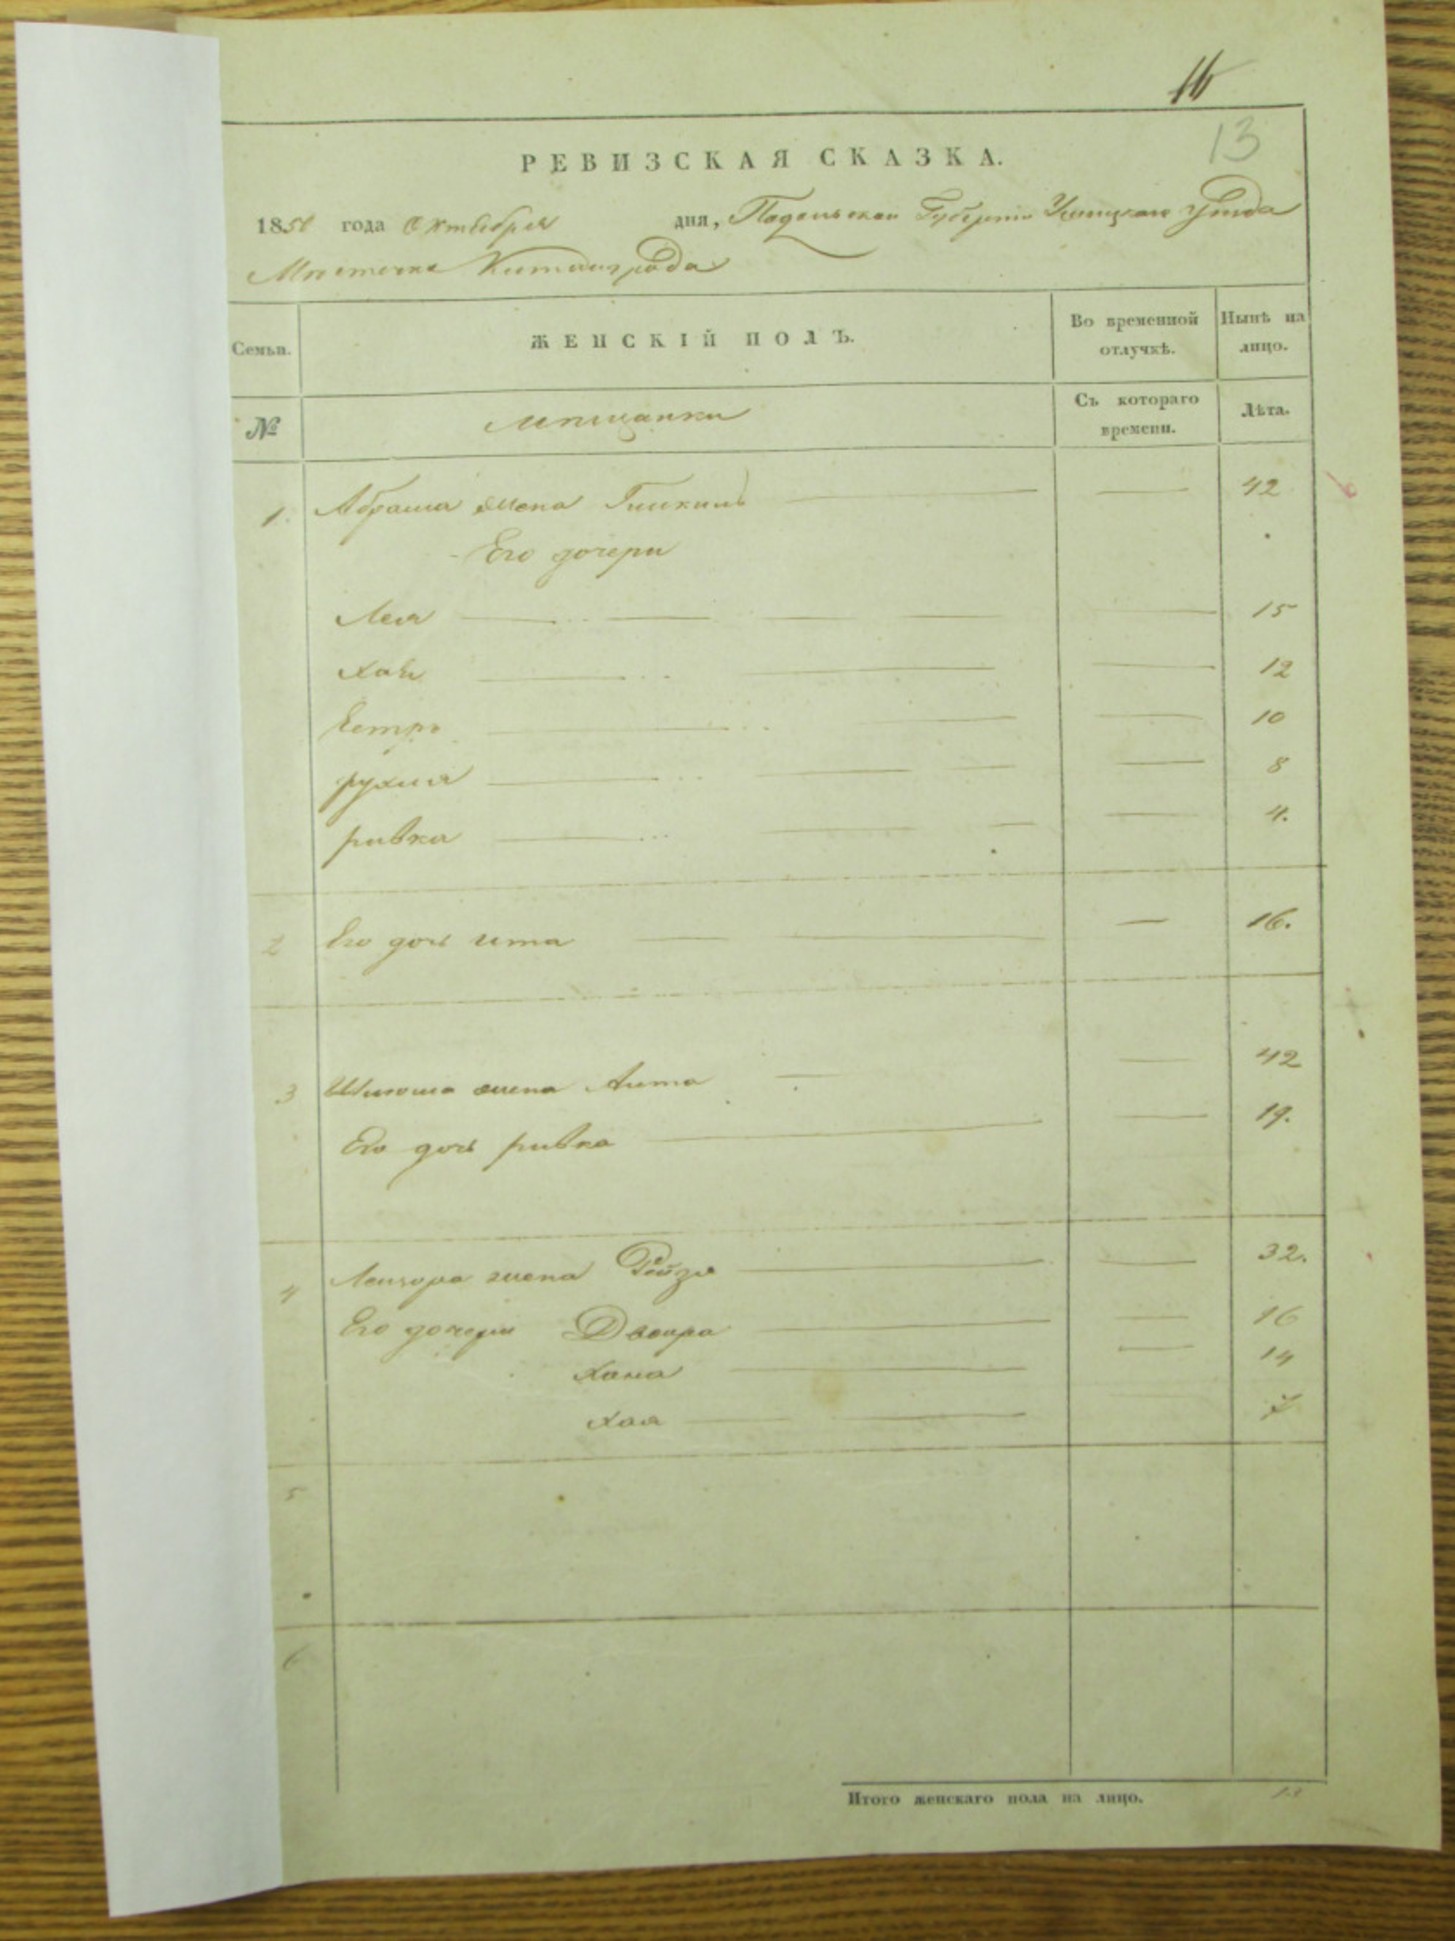 13
РЕВИЗСКАЯ СКАЗКА.
1850 года Октября дня, Подольской Губерніи Ушицкаго уезда
Местечка Китайгрода
Семьи. ЖЕНСКІЙ ПОЛЪ. Во временной отлучкѣ. Нынѣ на лицо.
№ мещанки Съ котораго времени. Лѣта.
1. Абрама жена 42
Его дочери
Лея 15
12
Естръ 10
рухля 8
ривка 4.
2 Его дочь ита 16.
3 жена 42
Его дочь ривка 19.
4 жена Рейзя 32.
Его дочери Двойра 16
Хана 14
Хая 7
5
6
Итого женскаго пола на лицо. 13